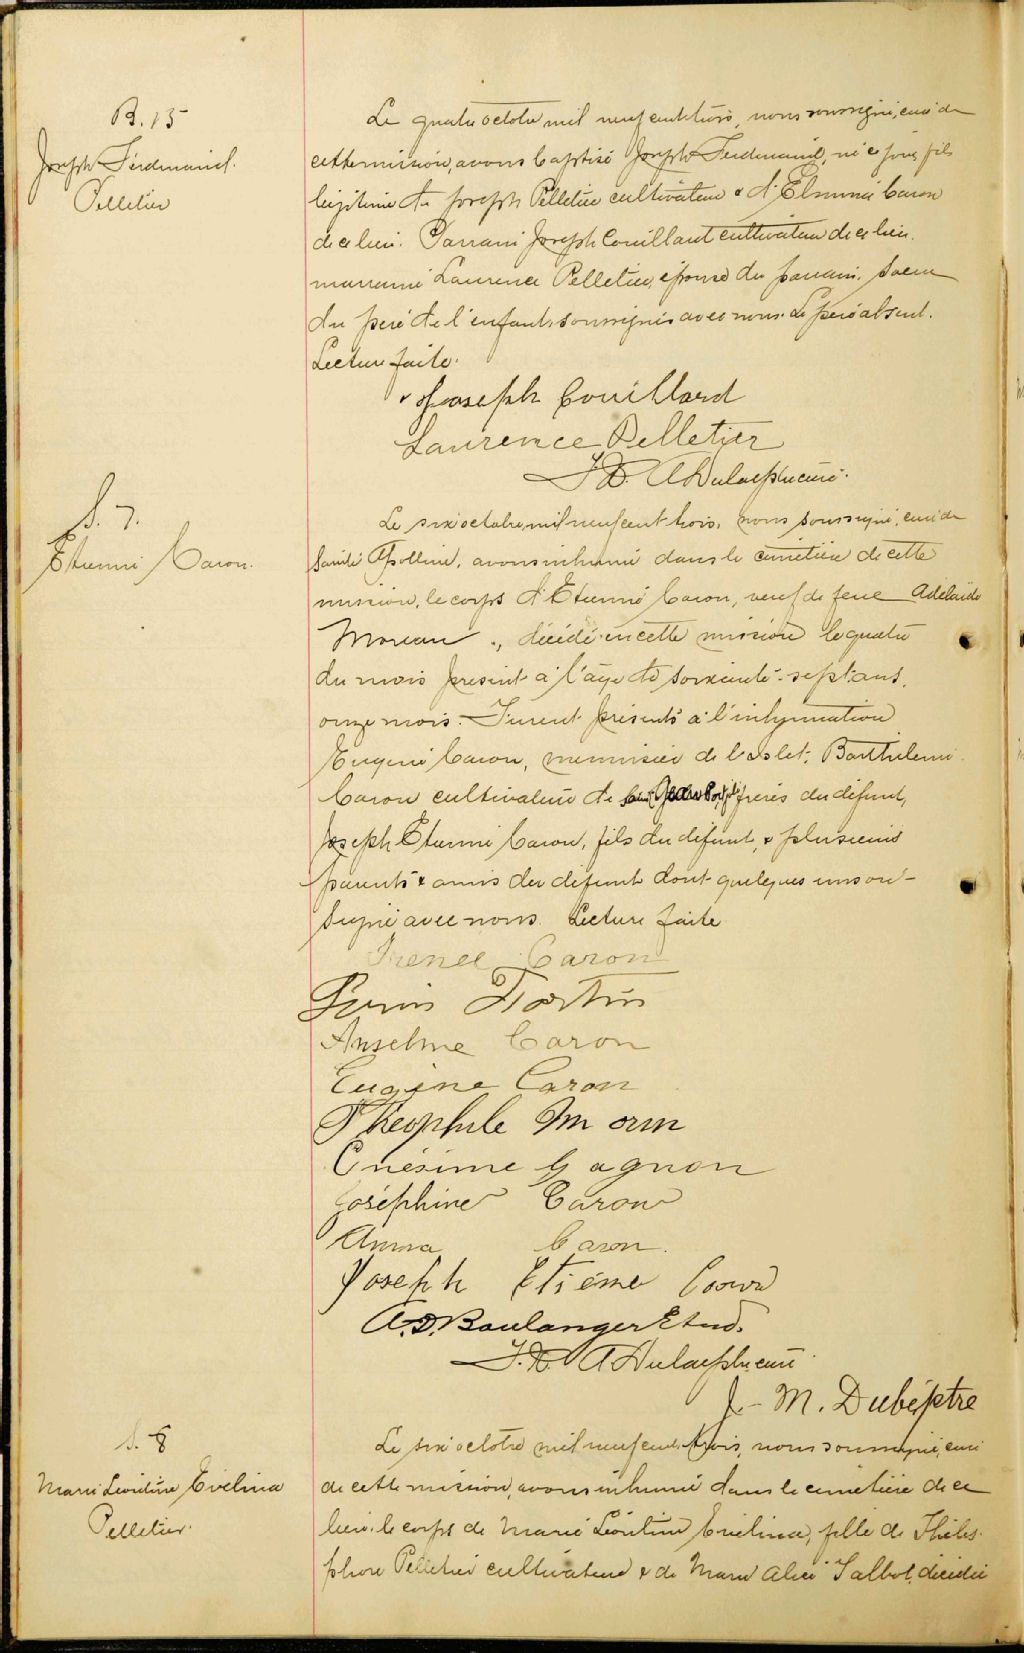 B. 15
Joseph Ferdinand
Pelletier
Le quatre octobre mil neuf cent trois, nous soussigné, curé de
cette mission, avons baptisé Joseph Ferdinand, né ce jour, fils
légitime de Joseph Pelletier cultivateur & d'Elmina Caron
de ce lieu. Parrain Joseph Couillard cultivateur de ce lieu.
marraine Laurence Pelletier, épouse du parrain, soeur
du père de l'enfant soussignés avec nous. Le père absent.
Lecture faite.
Joseph Couillard
Laurence Pelletier
curé.
S. 7.
Etienne Caron.
Le six octobre mil neuf cent trois, nous soussigné, curé de
Sainte Apolline, avons inhumé dans le cimetière de cette
mission, le corps d'Etienne Caron, veuf de feue Adélaïde
Moreau, décédé en cette mission le quatre
du mois présent à l'âge de soixante-sept ans,
onze mois. Furent présents à l'inhumation
Eugène Caron, menuisier de l'Islet, Barthelemi
Caron cultivateur de frères du défunt,
Joseph Etienne Caron, fils du défunt, & plusieurs
parents & amis du défunt dont quelques uns ont
signé avec nous. Lecture faite
Irenee Caron
Fortin
Anselme Caron
Eugène Caron
Théophile Morin
Onésime Gagnon
Joséphine Caron
Anna Caron.
Joseph Etiéme Caron
A.D. Boulanger Etud.
curé
J.-M. Dubé, ptre
S. 8
Marie Léontine Evelina
Pelletier.
Le six octobre mil neuf cent trois, nous soussigné, curé
de cette mission, avons inhumé dans le cimetière de ce
lieu le corps de Marie Léontine Evelina, fille de Théles-
phore Pelletier cultivateur & de Marie Alice Talbot, décédée